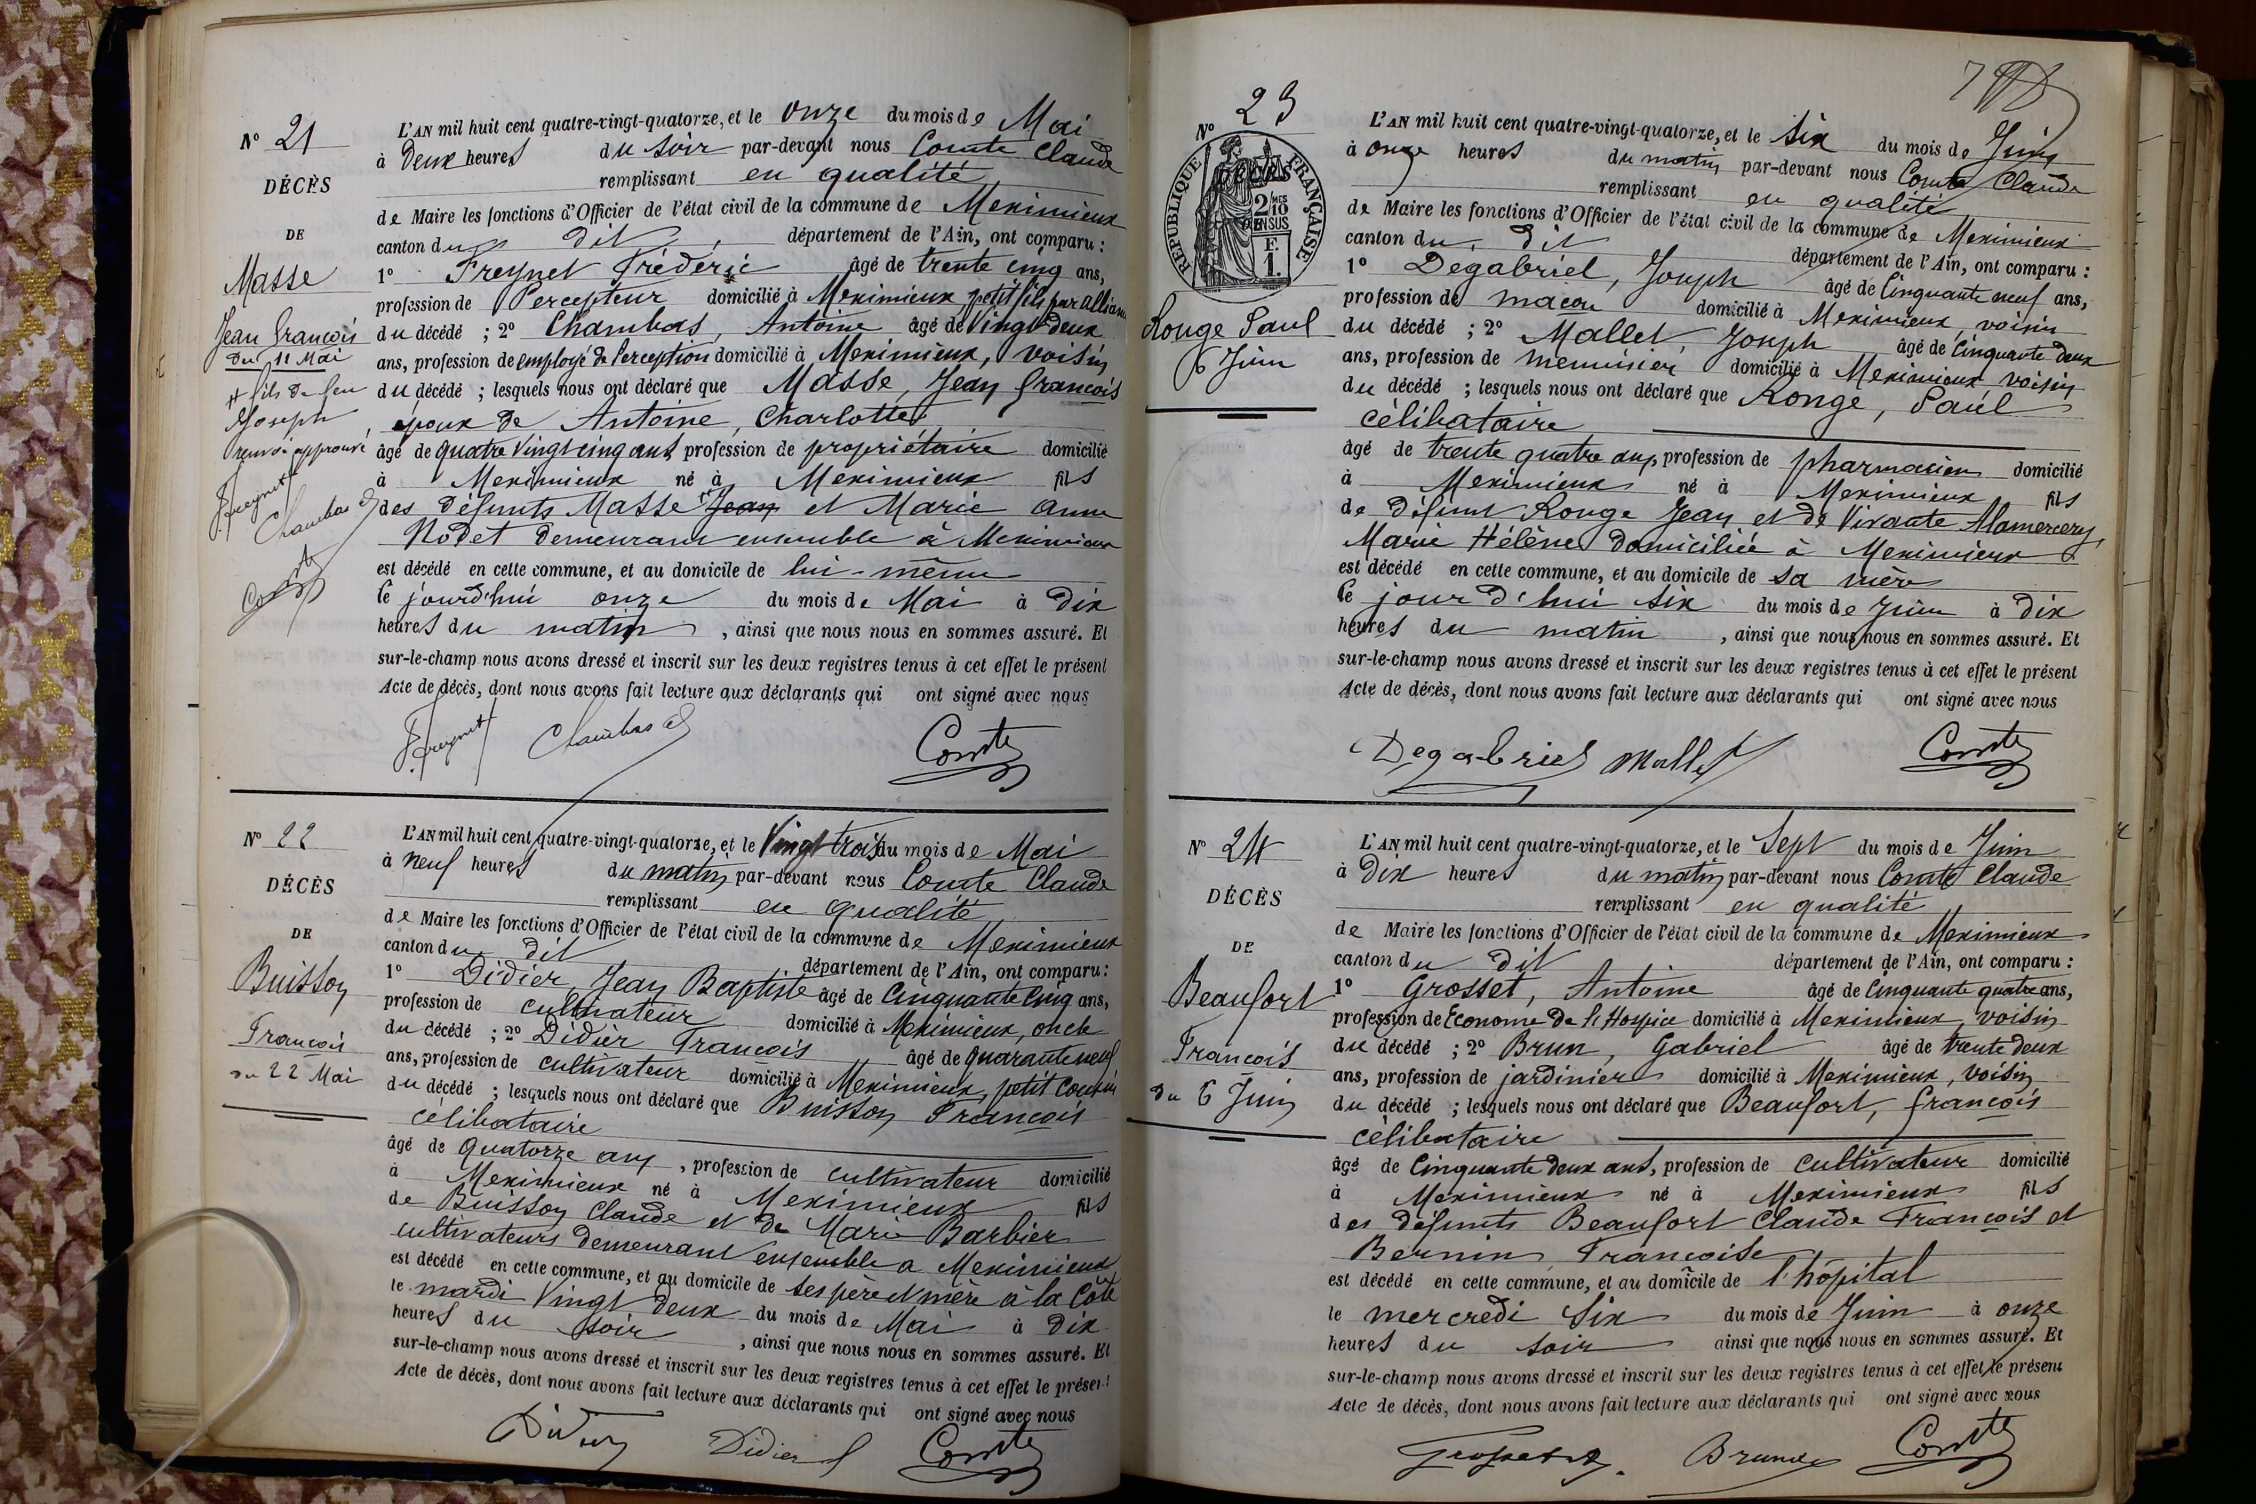 N° 21
DÉCÈS
DE
Masse
Jean François
du 11 Mai
# fils de feu
Joseph
renvoi approuvé
F. Freynet
Chambas
Comte
L'AN mil huit cent quatre-vingt-quatorze, et le onze du mois de Mai
à Deux heures du soir par-devant nous Comte Claude
remplissant en qualité
de Maire les fonctions d'Officier de l'état civil de la commune de Meximieux
canton du dit, département de l'Ain, ont comparu :
1° Freynet Frédéric âgé de trente cinq ans,
profession de Percepteur domicilié à Meximieux petit fils par alliance
du décédé ; 2° Chambas, Antoine âgé de Vingt deux
ans, profession de employé de Perception domicilié à Meximieux, voisin
du décédé ; lesquels nous ont déclaré que Masse, Jean François
époux de Antoine, Charlotte
âgé de quatre Vingt cinq ans, profession de propriétaire domicilié
à Meximieux né à Meximieux fils
des Défunts Masse # Jean et Marie Anne
Nodet demeurant ensemble à Meximieux
est décédé en cette commune, et au domicile de lui-même
le jourd'hui onze du mois de Mai à Dix
heures du matin, ainsi que nous nous en sommes assuré. Et
sur-le-champ nous avons dressé et inscrit sur les deux registres tenus à cet effet le présent
Acte de décès, dont nous avons fait lecture aux déclarants qui ont signé avec nous
F. Freynet Chambas Comte
N° 22
DÉCÈS
DE
Buisson
François
du 22 Mai
L'AN mil huit cent quatre-vingt-quatorze, et le Vingt trois du mois de Mai
à neuf heures du matin par-devant nous Comte Claude
remplissant en qualité
de Maire les fonctions d'Officier de l'état civil de la commune de Meximieux
canton du dit département de l'Ain, ont comparu :
1° Didier, Jean Baptiste âgé de Cinquante Cinq ans,
profession de cultivateur domicilié à Meximieux, oncle
du décédé ; 2° Didier François âgé de quarante neuf
ans, profession de cultivateur domicilié à Meximieux, petit cousin
du décédé ; lesquels nous ont déclaré que Buisson François
célibataire
âgé de quatorze ans, profession de cultivateur domicilié
à Meximieux né à Meximieux fils
de Buisson Claude et de Marie Barbier
cultivateurs demeurant ensemble a Meximieux
est décédé en cette commune, et au domicile de ses père et mère à la Côte
le mardi Vingt deux du mois de Mai à Dix
heures du soir, ainsi que nous nous en sommes assuré. Et
sur-le-champ nous avons dressé et inscrit sur les deux registres tenus à cet effet le présent
Acte de décès, dont nous avons fait lecture aux déclarants qui ont signé avec nous
Didier Didier Comte
7
N° 23
RÉPUBLIQUE FRANÇAISE
DÉCÈS
2/10MES
EN SUS
F.
1.
Ronge Paul
6 Juin
L'AN mil huit cent quatre-vingt-quatorze, et le six du mois de Juin
à onze heures du matin par-devant nous Comte Claude
remplissant en qualité
de Maire les fonctions d'Officier de l'état civil de la commune de Meximieux
canton du dit département de l'Ain, ont comparu :
1° Degabriel, Joseph âgé de Cinquante neuf ans,
profession de maçon domicilié à Meximieux, voisin
du décédé ; 2° Mallet, Joseph âgé de Cinquante deux
ans, profession de menuisier domicilié à Meximieux voisin
du décédé ; lesquels nous ont déclaré que Ronge, Paul
célibataire
âgé de trente quatre ans, profession de pharmacien domicilié
à Meximieux né à Meximieux fils
de Défunt Ronge Jean et de Vivante Alamercery,
Marie Hélène domiciliée à Meximieux
est décédé en cette commune, et au domicile de sa mère
le jour d'hui six du mois de Juin à Dix
heures du matin, ainsi que nous nous en sommes assuré. Et
sur-le-champ nous avons dressé et inscrit sur les deux registres tenus à cet effet le présent
Acte de décès, dont nous avons fait lecture aux déclarants qui ont signé avec nous
Degabriel Mallet Comte
N° 24
DÉCÈS
DE
Beaufort
François
du 6 Juin
L'AN mil huit cent quatre-vingt-quatorze, et le Sept du mois de Juin
à Dix heures du matin par-devant nous Comte Claude
remplissant en qualité
de Maire les fonctions d'Officier de l'état civil de la commune de Meximieux
canton du dit département de l'Ain, ont comparu :
1° Grosset, Antoine âgé de Cinquante quatre ans,
profession de Econome de l'Hospice domicilié à Meximieux, voisin
du décédé ; 2° Brun, Gabriel âgé de trente deux
ans, profession de jardinier domicilié à Meximieux, voisin
du décédé ; lesquels nous ont déclaré que Beaufort, françois
célibataire
âgé de Cinquante deux ans, profession de cultivateur domicilié
à Meximieux né à Meximieux fils
des défunts Beaufort Claude François et
Bernin, Françoise
est décédé en cette commune, et au domicile de l'hôpital
le mercredi Six du mois de Juin à onze
heures du soir ainsi que nous nous en sommes assuré. Et
sur-le-champ nous avons dressé et inscrit sur les deux registres tenus à cet effet le présent
Acte de décès, dont nous avons fait lecture aux déclarants qui ont signé avec nous
Grosset Brun Comte